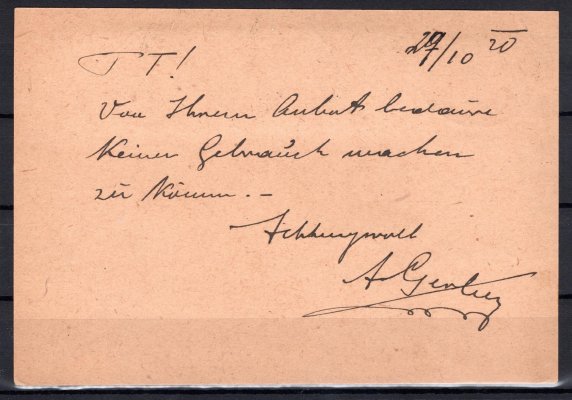 PT! 29/10 20
Von Ihrem Anbot bedaure
keinen Gebrauch machen
zu können. –
Achtungsvoll
A.